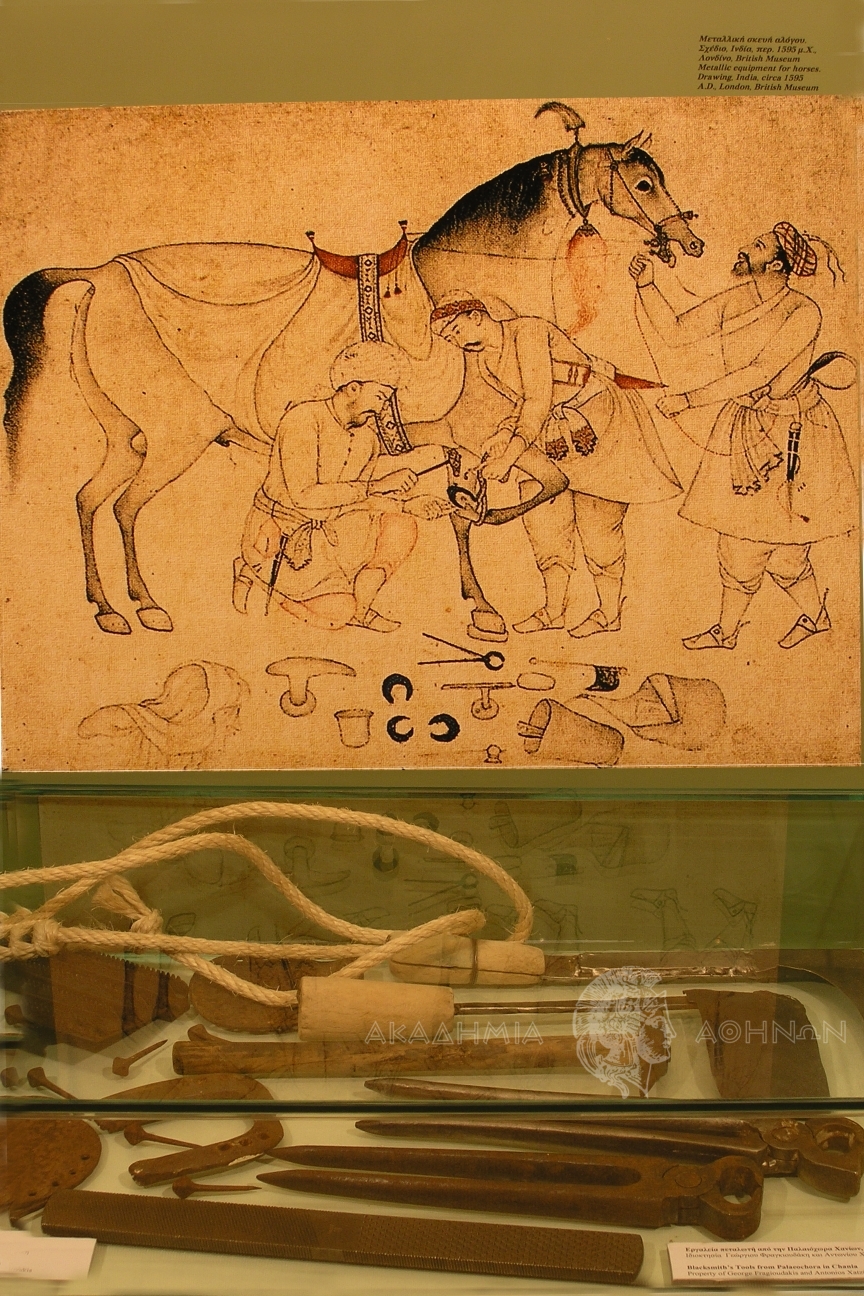 Μεταλλική σκευή αλόγου.
Σχέδιο, Ινδία, περ. 1595 μ.Χ.,
Λονδίνο, British Museum
Metallic equipment for horses.
Drawing, India, circa 1595
A.D., London, British Museum
ΑΚΑΔΗΜΙΑ ΑΘΗΝΩΝ
Εργαλεία πεταλωτή από την Παλαιόχωρα Χανίων.
Ιδιοκτησία Γεώργιου Φραγκιουδάκη και Αντωνίου
Blacksmith's Tools from Palaeochora in Chania
Property of George Fragioudakis and Antonios